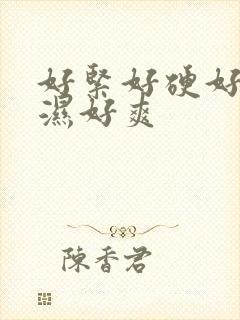 好緊好硬好
濕好爽
陳香君